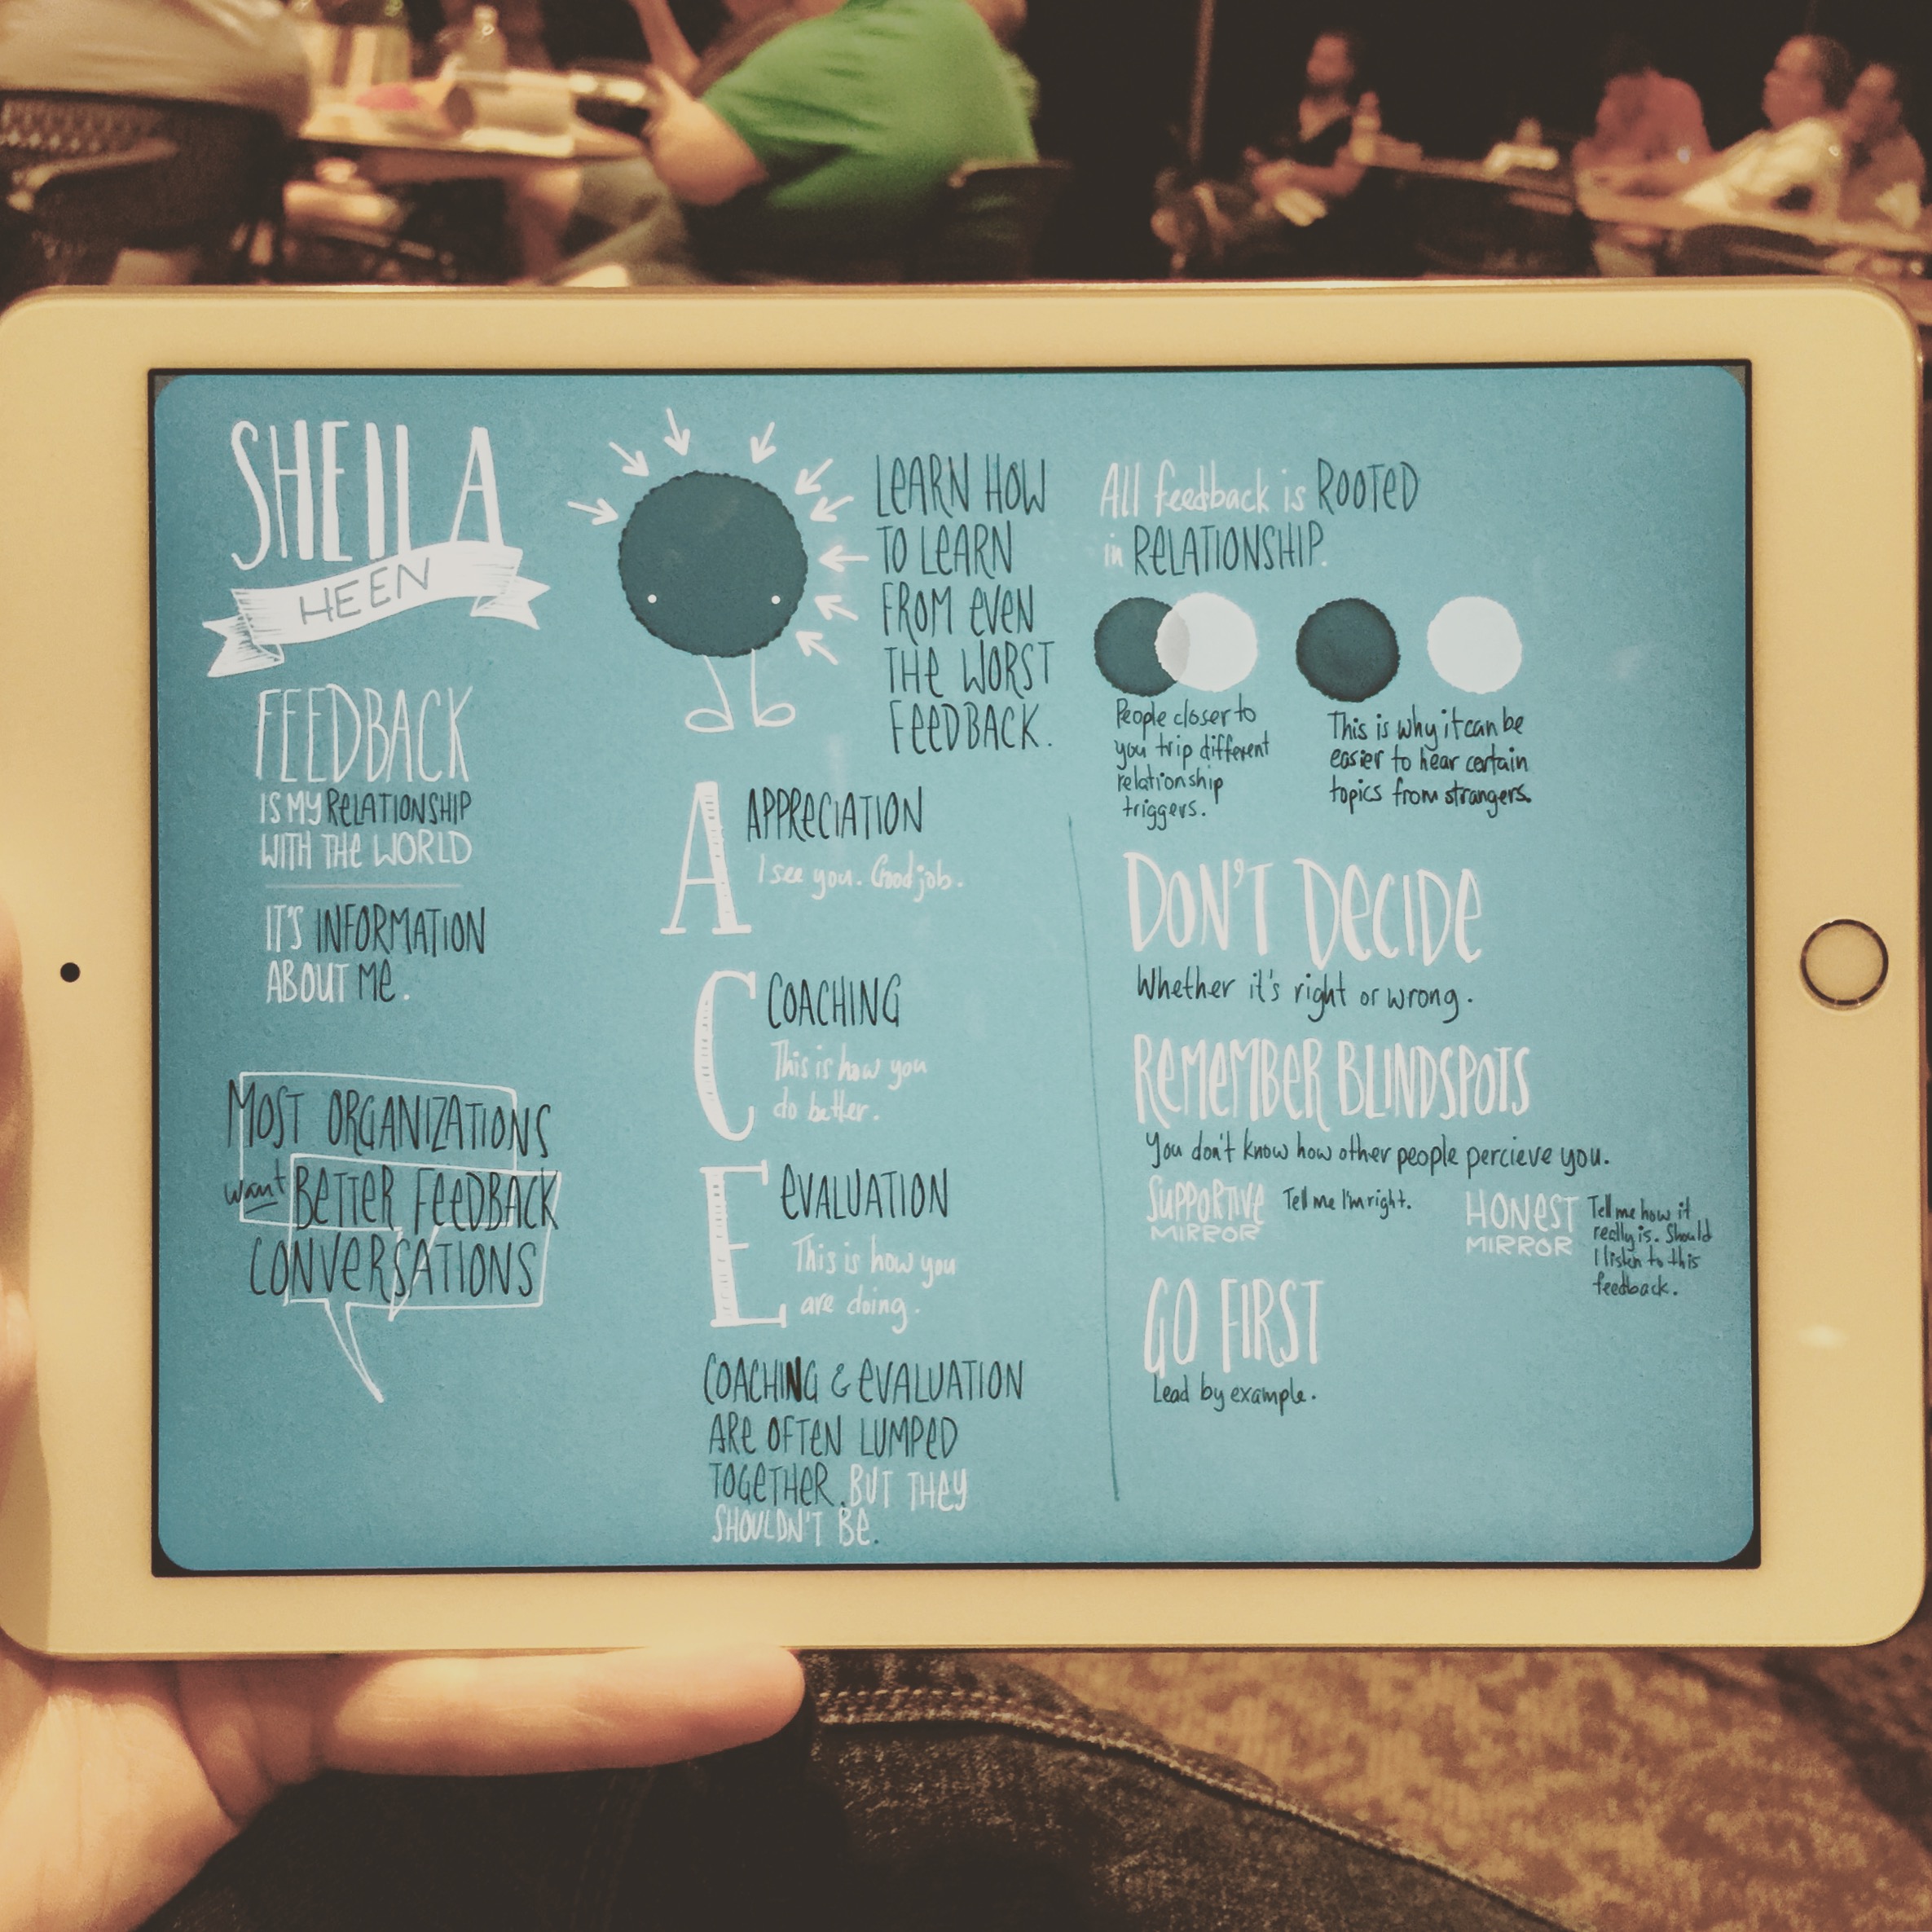 SHEILA
HEEN
FEEDBACK
IS MY RELATIONSHIP
WITH THE WORLD
IT'S INFORMATION
ABOUT ME.
MOST ORGANIZATIONS
want BETTER FEEDBACK
CONVERSATIONS
LEARN HOW
TO LEARN
FROM EVEN
THE WORST
FEEDBACK.
A APPRECIATION
I see you. Good job.
C COACHING
This is how you
do better.
E EVALUATION
This is how you
are doing.
COACHING & EVALUATION
ARE OFTEN LUMPED
TOGETHER. BUT THEY
SHOULDN'T BE.
All feedback is ROOTED
in RELATIONSHIP.
People closer to
you trip different
relationship
triggers.
This is why it can be
easier to hear certain
topics from strangers.
DON'T DECIDE
Whether it's right or wrong.
REMEMBER BLINDSPOTS
You don't know how other people percieve you.
SUPPORTIVE
MIRROR
Tell me I'm right.
HONEST
MIRROR
Tell me how it
really is. Should
I listen to this
feedback.
GO FIRST
Lead by example.